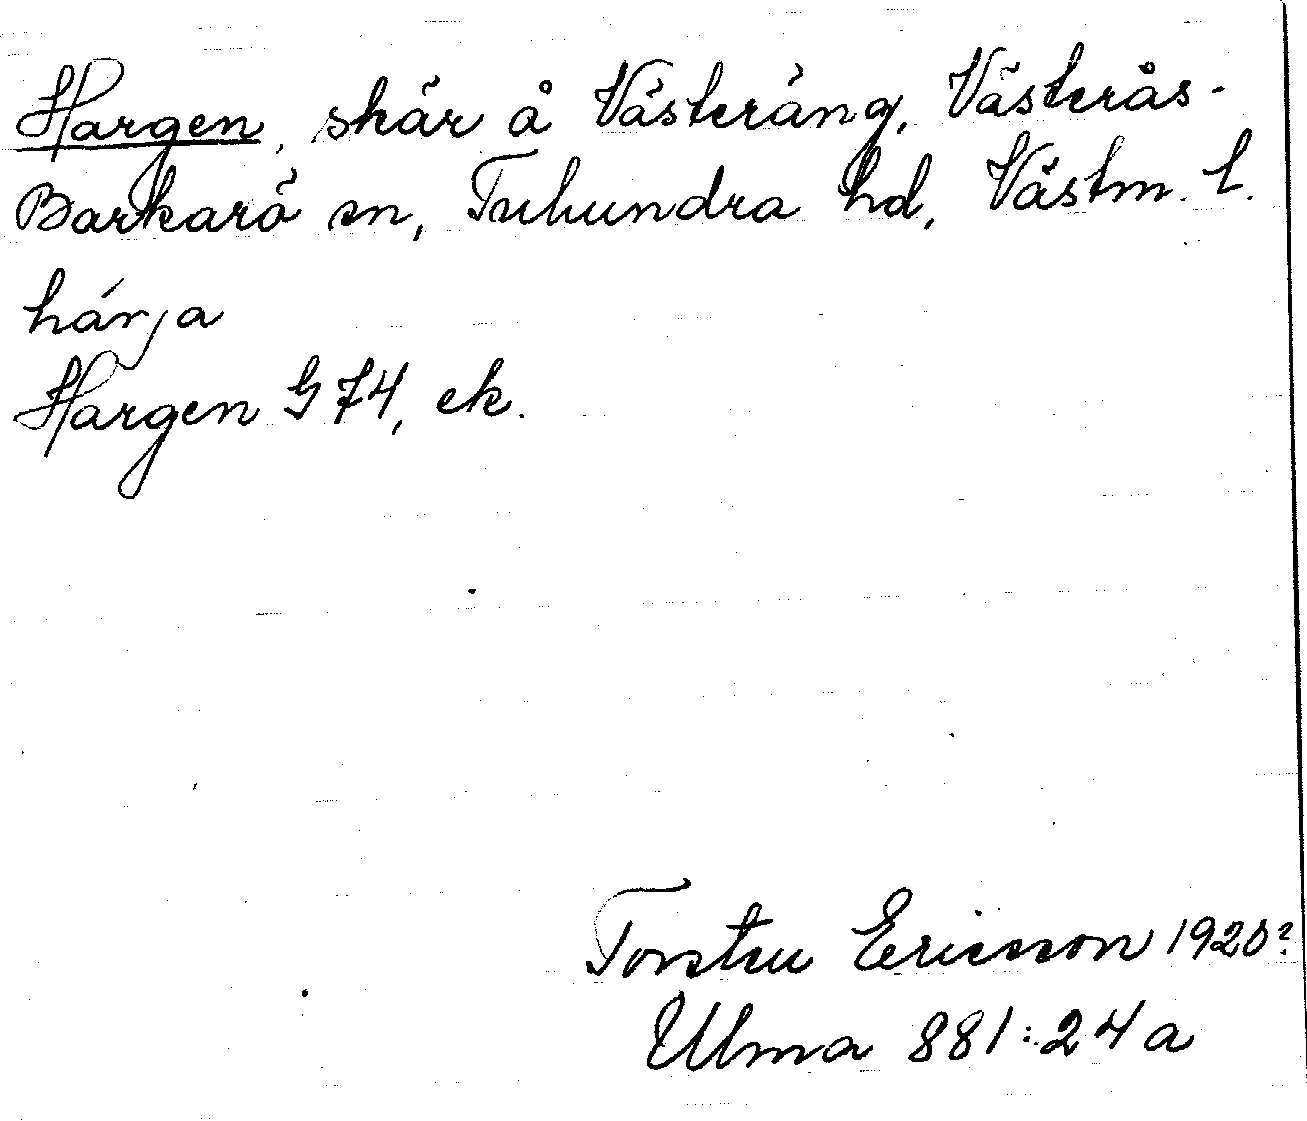 Hargen, skär å Västeräng, Västerås-
Barkarö sn, Tuhundra hd, Västm. l.
hárja
Hargen G 74, ek.
Torsten Ericsson 1920?
Ulma 881:24 a